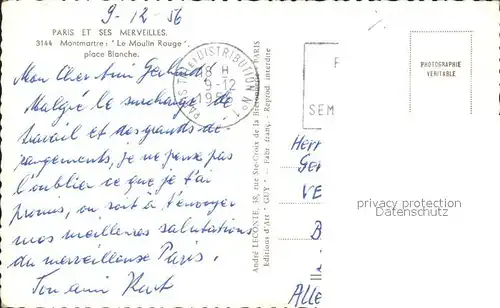 9-12 56
PARIS ET SES MERVEILLES.
3144 Montmartre : "Le Moulin Rouge"
place Blanche.
Mon Cher Ami Gerhard!
Malgré le surcharge de
travail et des grands dé-
rangements, je ne pense pas
t'oublier ce que je t'ai
promis, ou soit à t'envoyer
mes meilleures salutations
du merveilleux Paris.
Ton ami Kurt
PARIS TRI ET DISTRIBUTION N° 1
18 H
9-12
André LECONTE, 38, rue Ste-Croix de la Bretonnerie, PARIS
Editions d'Art "GUY" - Fabr. franç. - Reprod interdite
F
SEM
PHOTOGRAPHIE
VÉRITABLE
Herr
Ger
VE
B
Alle
privacy protection
Datenschutz